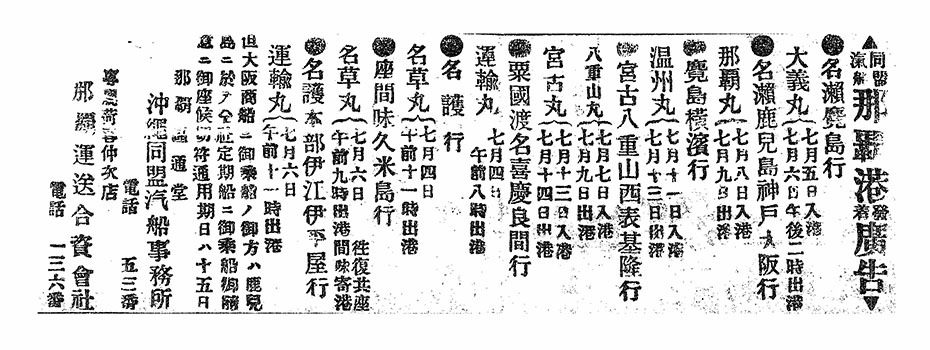 ▲同盟滊船那覇港發着廣告▼
●名瀬鹿島行
大義丸{七月五日入港
七月六日午後二時出港
●名瀬鹿兒島神戸大阪行
那覇丸{七月八日入港
七月九日出港
●鹿島横濱行
温州丸{七月十一日入港
七月十三日出港
●宮古八重山西表基隆行
八重山丸{七月七日入港
七月九日出港
宮古丸{七月十三日入港
七月十四日出港
●粟國渡名喜慶良間行
運輸丸 七月四日
午前八時出港
●名護行
名草丸{七月四日
午前十一時出港
●座間味久米島行
名草丸{七月六日 往復共座
午前九時出港間味寄港
●名護本部伊江伊平屋行
運輸丸{七月六日
午前十一時出港
但大阪商船ニ御乗船ノ御方ハ鹿兒
島ニ於テ仝社定期船ニ御乗船御随
意ニ御座候切符通用期日ハ十五日
那覇通堂
沖縄同盟汽船事務所
電話 五三番
客荷物荷客仲次店
那覇運送合資會社
電話 一三六番